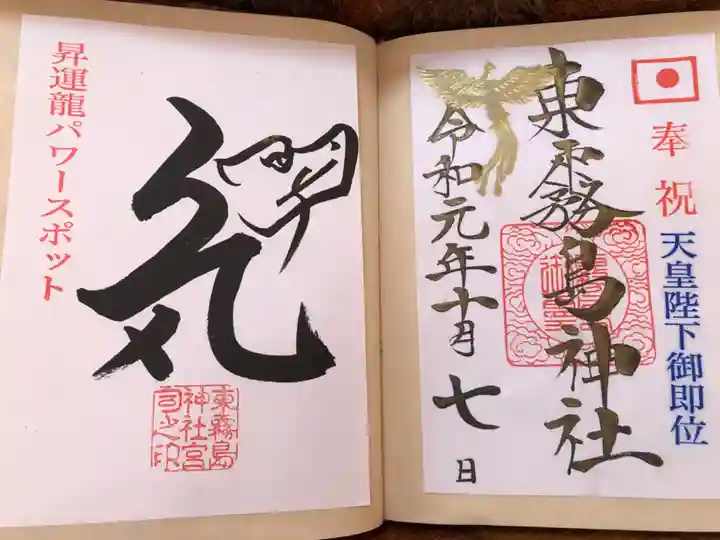 奉祝
天皇陛下御即位
東霧島神社
令和元年十月七日
気
昇運龍パワースポット
東霧島
神社宮
司之印